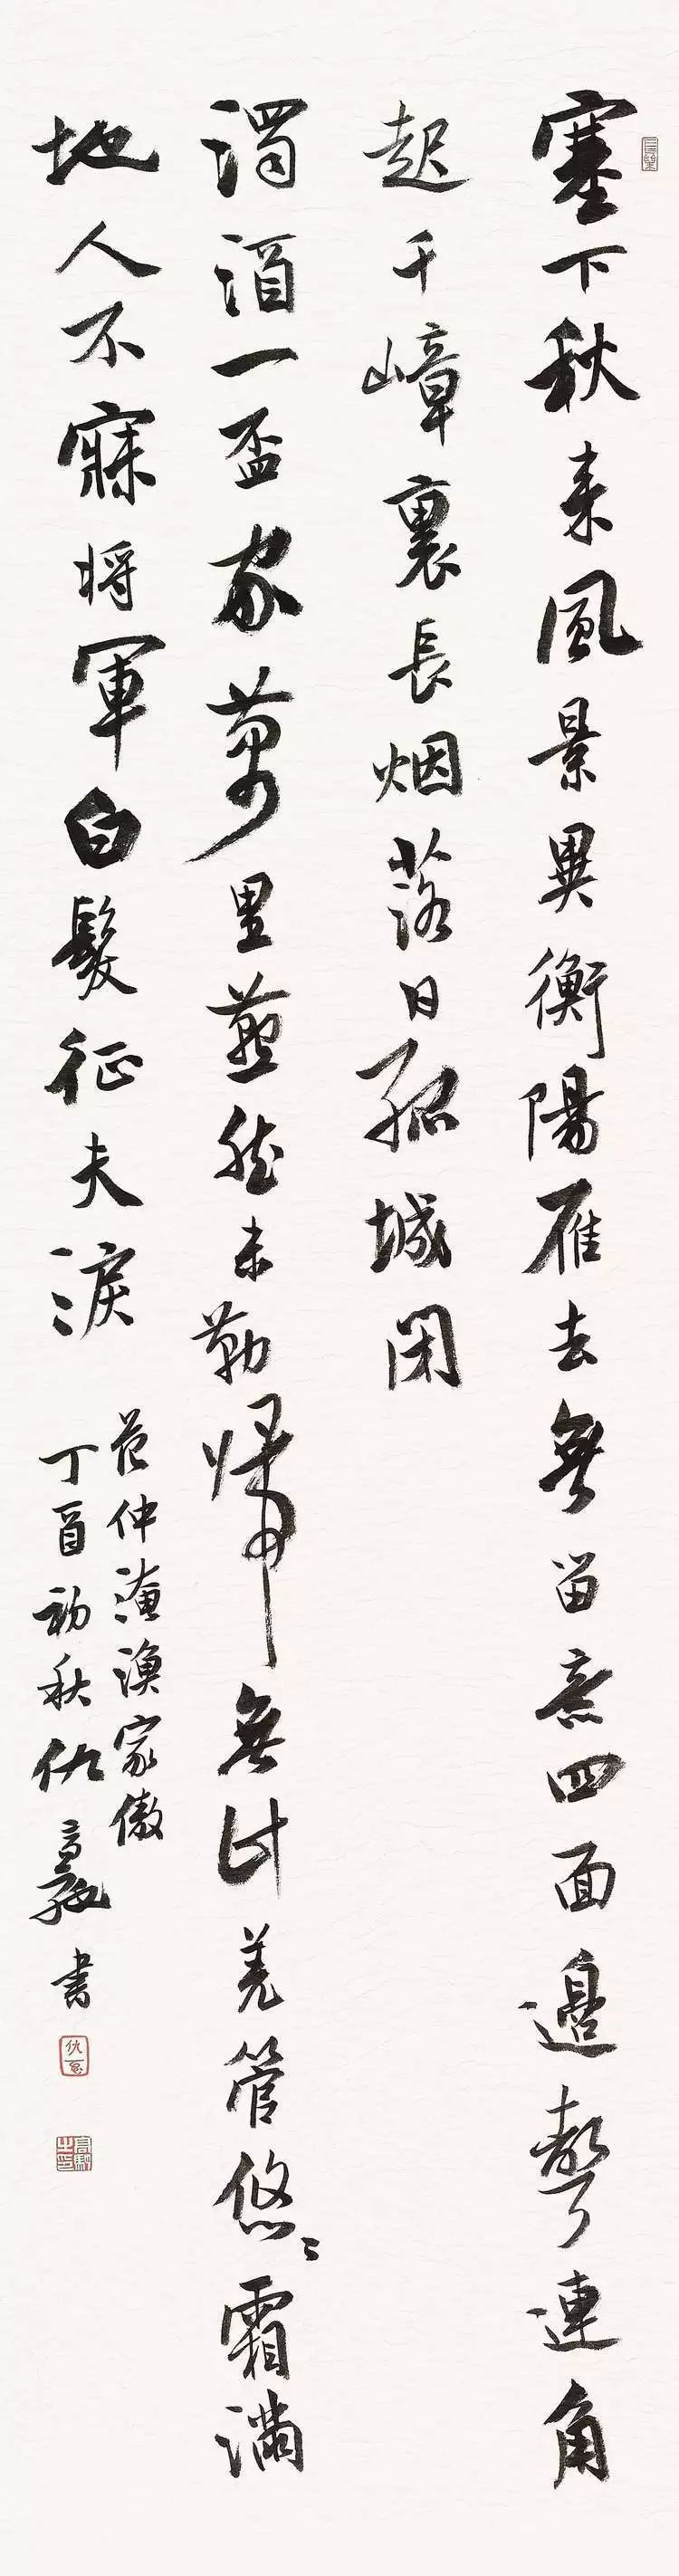 塞下秋来風景異衡陽雁去無留意四面邉聲連角
起千嶂裏長烟落日孤城閉
濁酒一盃家萬里燕然未勒歸無計羌管悠〻霜滿
地人不寐將軍白髮征夫淚
范仲淹漁家傲
丁酉初秋仇高馭書